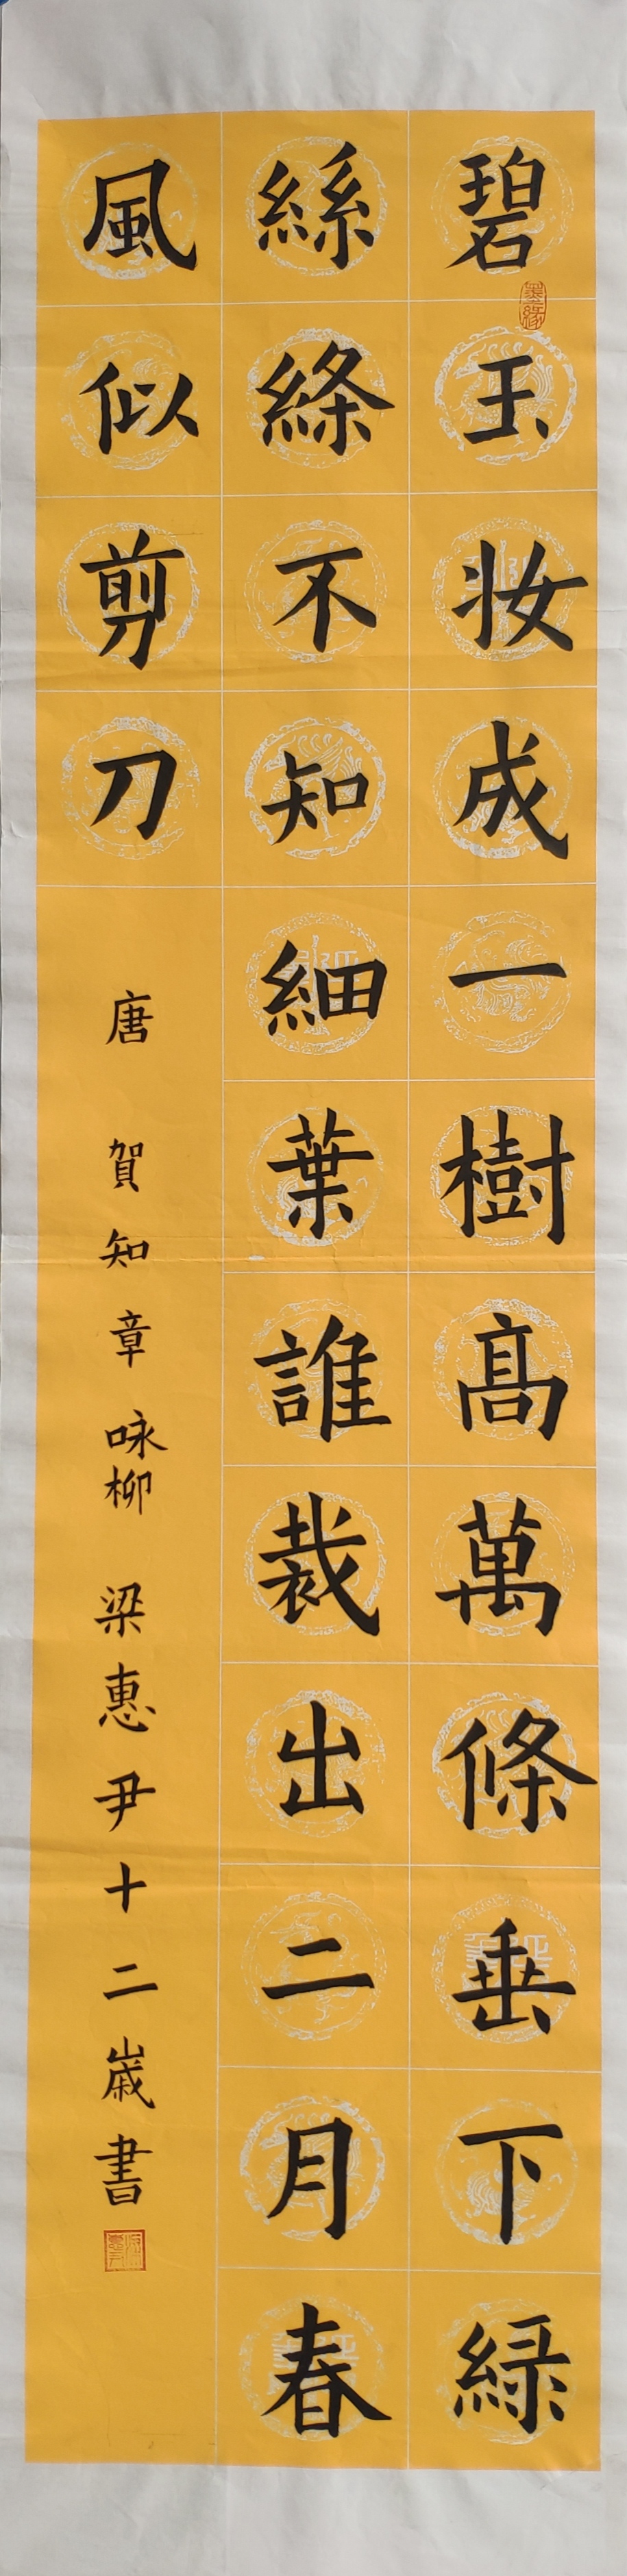 碧玉妆成一樹高萬條垂下緑
絲絛不知細葉誰裁出二月春
風似剪刀
唐 賀知章 咏柳 梁惠尹十二歲書
墨缘
梁惠尹